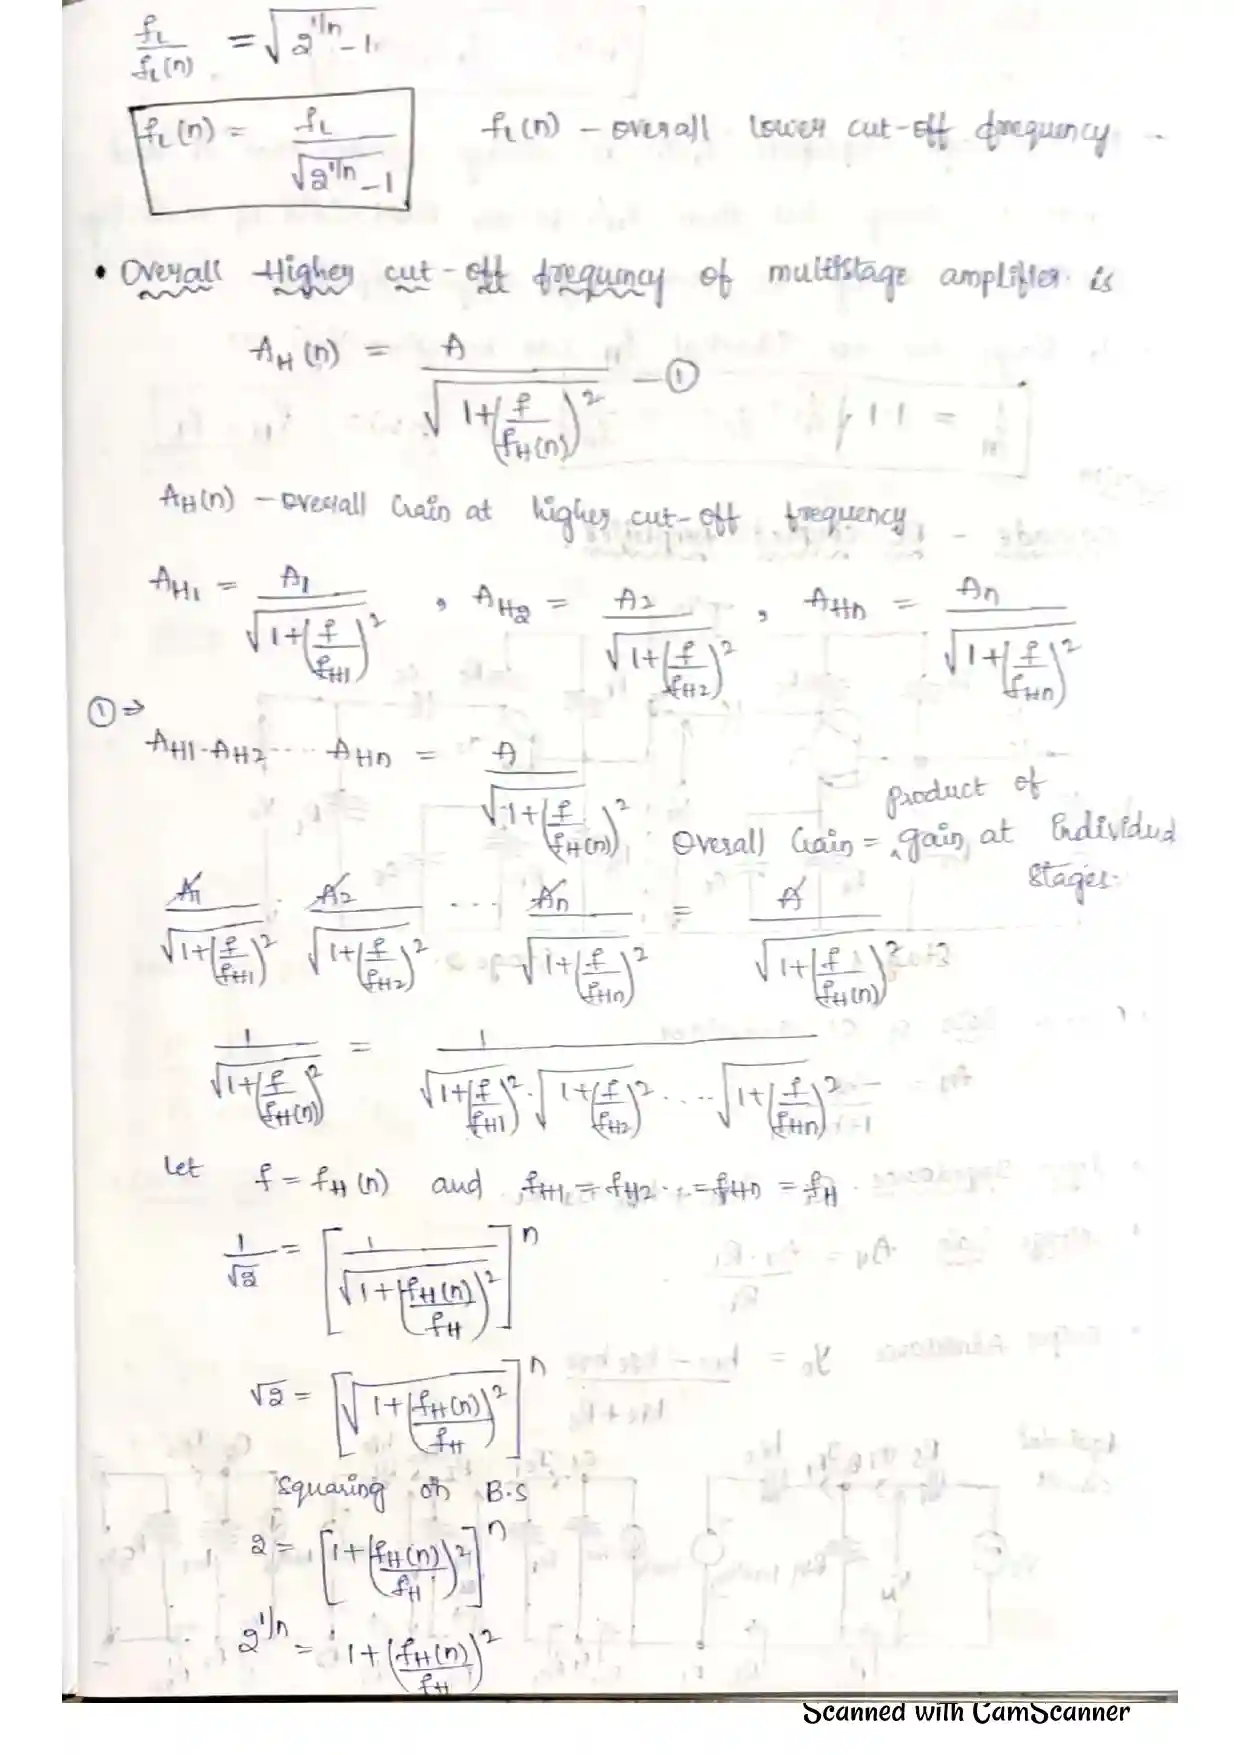 fL/fL(n) = √(2^(1/n) - 1)
fL(n) = fL/√(2^(1/n) - 1)    fL(n) - overall lower cut-off frequency
• Overall Higher cut-off frequency of multistage amplifier is
AH(n) = A/√(1+(f/fH(n))²) — ①
AH(n) - overall Gain at higher cut-off frequency
AH1 = A1/√(1+(f/fH1)²) , AH2 = A2/√(1+(f/fH2)²) , AHn = An/√(1+(f/fHn)²)
① ⇒
AH1·AH2 ···· AHn = A/√(1+(f/fH(n))²)
product of
Overall Gain = ^gain, at Individual
stages.
A1/√(1+(f/fH1)²) · A2/√(1+(f/fH2)²) ... An/√(1+(f/fHn)²) = A/√(1+(f/fH(n))²)
1/√(1+(f/fH(n))²) = 1/(√(1+(f/fH1)²) · √(1+(f/fH2)²) ..... √(1+(f/fHn)²))
Let f = fH(n) and fH1 = fH2 ... = fHn = fH.
1/√2 = [1/√(1+(fH(n)/fH)²)]^n
√2 = [√(1+(fH(n)/fH)²)]^n
Squaring on B.S
2 = [1+(fH(n)/fH)²]^n
2^(1/n) = 1+(fH(n)/fH)²
Scanned with CamScanner